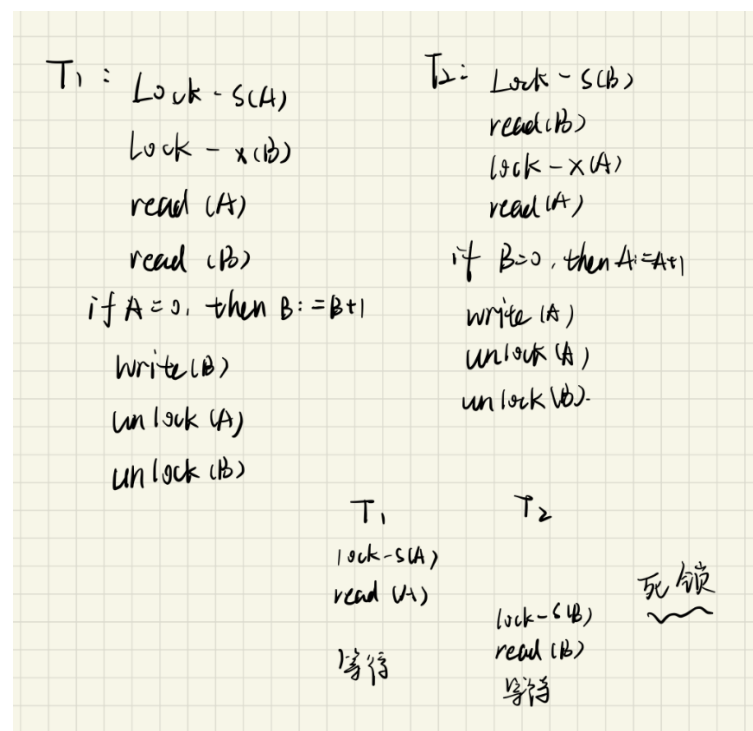 T1:
Lock-S(A)
Lock-X(B)
read (A)
read (B)
if A=0, then B:=B+1
write(B)
unlock(A)
unlock(B)
T2:
Lock-S(B)
read(B)
lock-X(A)
read(A)
if B=0, then A:=A+1
write(A)
unlock(A)
unlock(B).
T1 T2
lock-S(A)
read (A)
lock-S(B)
read(B)
等待
等待
死锁